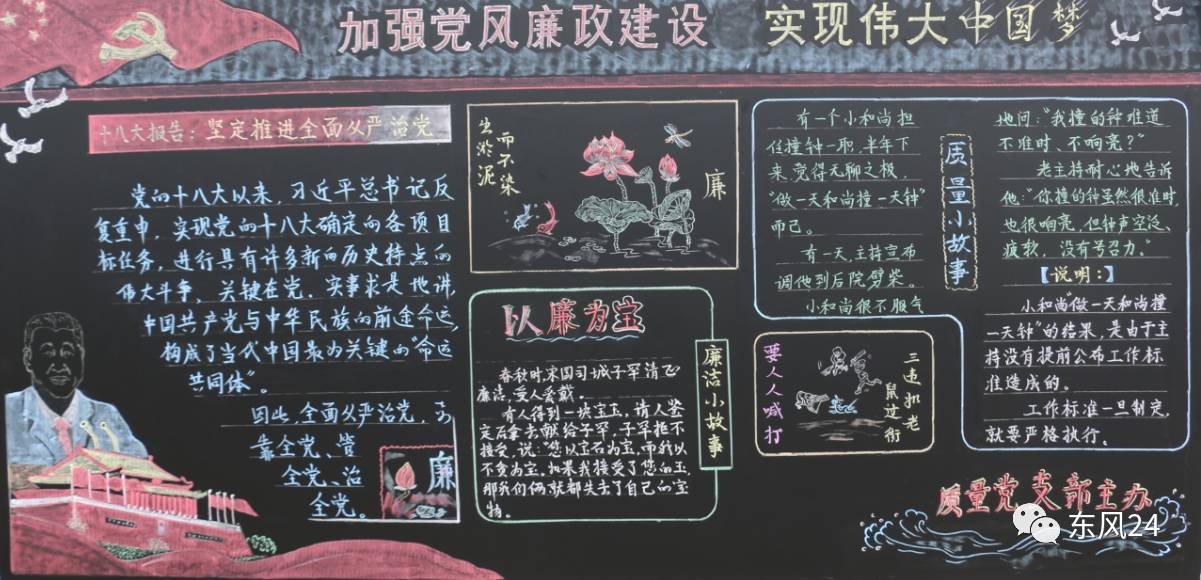 加强党风廉政建设 实现伟大中国梦
十八大报告：坚定推进全面从严治党
党的十八大以来，习近平总书记反
复重申，实现党的十八大确定的各项目
标任务，进行具有许多新的历史特点的
伟大斗争，关键在党。实事求是地讲，
中国共产党与中华民族的前途命运，
构成了当代中国最为关键的“命运
共同体”。
因此，全面从严治党，
靠全党、管
全党、治
全党。
廉
出淤泥
而不染
廉
以廉为宝
廉洁小故事
春秋时，宋国司城子罕清正
廉洁，受人爱戴。
有人得到一块宝玉，请人鉴
定后拿去献给子罕，子罕拒不
接受，说：“您以宝石为宝，而我以
不贪为宝。如果我接受了您的玉，
那我们俩就都失去了自己的宝
物。
有一个小和尚担
任撞钟一职，半年下
来，觉得无聊之极，
“做一天和尚撞一天钟”
而已。
有一天，主持宣布
调他到后院劈柴。
小和尚很不服气
质量小故事
地问：“我撞的钟难道
不准时、不响亮？”
老主持耐心地告诉
他：“你撞的钟虽然很准时，
也很响亮，但钟声空泛、
疲软，没有号召力。”
【说明：】
小和尚“做一天和尚撞
一天钟”的结果，是由于主
持没有提前公布工作标
准造成的。
工作标准一旦制定，
就要严格执行。
要人人喊打
三违犯老
鼠过街
质量党支部主办
东风24